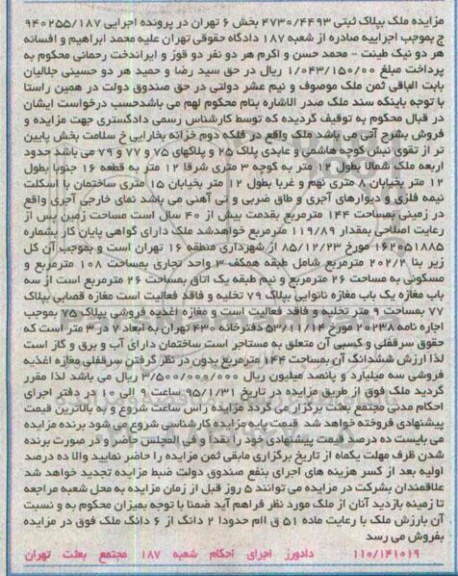 مزایده ملک بپلاک ثبتی ۴۷۳۰/۴۴۹۳ بخش ۶ تهران در پرونده اجرایی ۹۴۰۲۵۵/۱۸۷
ج بموجب اجراییه صادره از شعبه ۱۸۷ دادگاه حقوقی تهران علیه محمد ابراهیم و افسانه
هر دو نیک طینت - محمد حسن و اکرم هر دو نفر دو قوز و ایراندخت رحمانی محکوم به
پرداخت مبلغ ۱/۰۴۳/۱۵۰/۰۰ ریال در حق سید رضا و حمید هر دو حسینی جلالیان
بابت الباقی ثمن ملک موصوف و نیم عشر دولتی در حق صندوق دولت در همین راستا
با توجه باینکه سند ملک صدر الاشاره بنام محکوم لهم می باشدحسب درخواست ایشان
در قبال محکوم به توقیف گردیده که توسط کارشناس رسمی دادگستری جهت مزایده و
فروش بشرح آتی می باشد ملک واقع در فلکه دوم خزانه بخارایی خ سلامت بخش پایین
تر از تقوی نبش کوچه هاشمی و عابدی پلاک ۲۵ و پلاکهای ۷۵ و ۷۷ و ۷۹ می باشد حدود
اربعه ملک شمالا بطول ۱۲ متر به کوچه ۳ متری شرقا ۱۲ متر به قطعه ۱۶ جنوبا بطول
۱۲ متر بخیابان ۸ متری نهم و غربا بطول ۱۲ متر بخیابان ۱۵ متری ساختمان با اسکلت
نیمه فلزی و دیوارهای آجری و طاق ضربی و تی آهنی می باشد نمای خارجی آجری واقع
در زمینی بمساحت ۱۴۴ مترمربع بقدمت بیش از ۴۰ سال است مساحت زمین پس از
رعایت اصلاحی بمقدار ۱۱۹/۸۹ مترمربع خواهدشد ملک دارای گواهی پایان کار بشماره
۱۶۲۰۵۱۸۸۵ مورخ ۸۵/۱۲/۲۳ از شهرداری منطقه ۱۶ تهران است و بموجب آن کل
زیر بنا ۲۰۲/۲ مترمربع شامل طبقه همکف ۳ واحد تجاری بمساحت ۱۰۸ مترمربع و
مسکونی به مساحت ۲۶ مترمربع و نیم طبقه یک اتاق بمساحت ۲۶ مترمربع است از سه
باب مغازه یک باب مغازه نانوایی بپلاک ۷۹ تخلیه و فاقد فعالیت است مغازه قصابی بپلاک
۷۷ بمساحت ۹ متر تخلیه و فاقد فعالیت است و مغازه اغذیه فروشی بپلاک ۷۵ بموجب
اجاره نامه ۲۰۲۳۸ مورخ ۵۳/۱۱/۱۲ دفترخانه ۴۳۰ تهران به ابعاد ۷ در ۳ متر است که
حقوق سرقفلی و کسبی آن متعلق به مستاجر است ساختمان دارای آب و برق و گاز است
لذا ارزش ششدانگ آن بمساحت ۱۴۴ مترمربع بدون در نظر گرفتن سرقفلی مغازه اغذیه
فروشی سه میلیارد و پانصد میلیون ریال ۳/۵۰۰/۰۰۰/۰۰۰ ریال می باشد لذا مقرر
گردید ملک فوق از طریق مزایده در تاریخ ۹۵/۱/۳۱ ساعت ۹ الی ۱۰ در دفتر اجرای
احکام مدنی مجتمع بعثت برگزار می گردد مزایده راس ساعت شروع و به بالاترین قیمت
پیشنهادی فروخته خواهد شد قیمت پایه مزایده کارشناسی شروع می شود برنده مزایده
می بایست ده درصد قیمت پیشنهادی خود را نقدا و فی المجلس حاضر و در صورت برنده
شدن ظرف مهلت یکماه از تاریخ برگزاری مابقی ثمن مزایده را حاضر نمایید والا ده درصد
اولیه بعد از کسر هزینه های اجرای بنفع صندوق دولت ضبط مزایده تجدید خواهد شد
علاقمندان بشرکت در مزایده می توانند ۵ روز قبل از زمان مزایده به محل شعبه مراجعه
تا زمینه بازدید آنان از ملک مورد نظر فراهم آید ضمنا با توجه بمیزان محکوم به و نسبت
آن بارزش ملک با رعایت ماده ۵۱ ق اام حدودا ۲ دانگ از ۶ دانگ ملک فوق در مزایده
بفروش می رسد
۱۱۰/۱۴۱۰۱۹ دادورز اجرای احکام شعبه ۱۸۷ مجتمع بعثت تهران